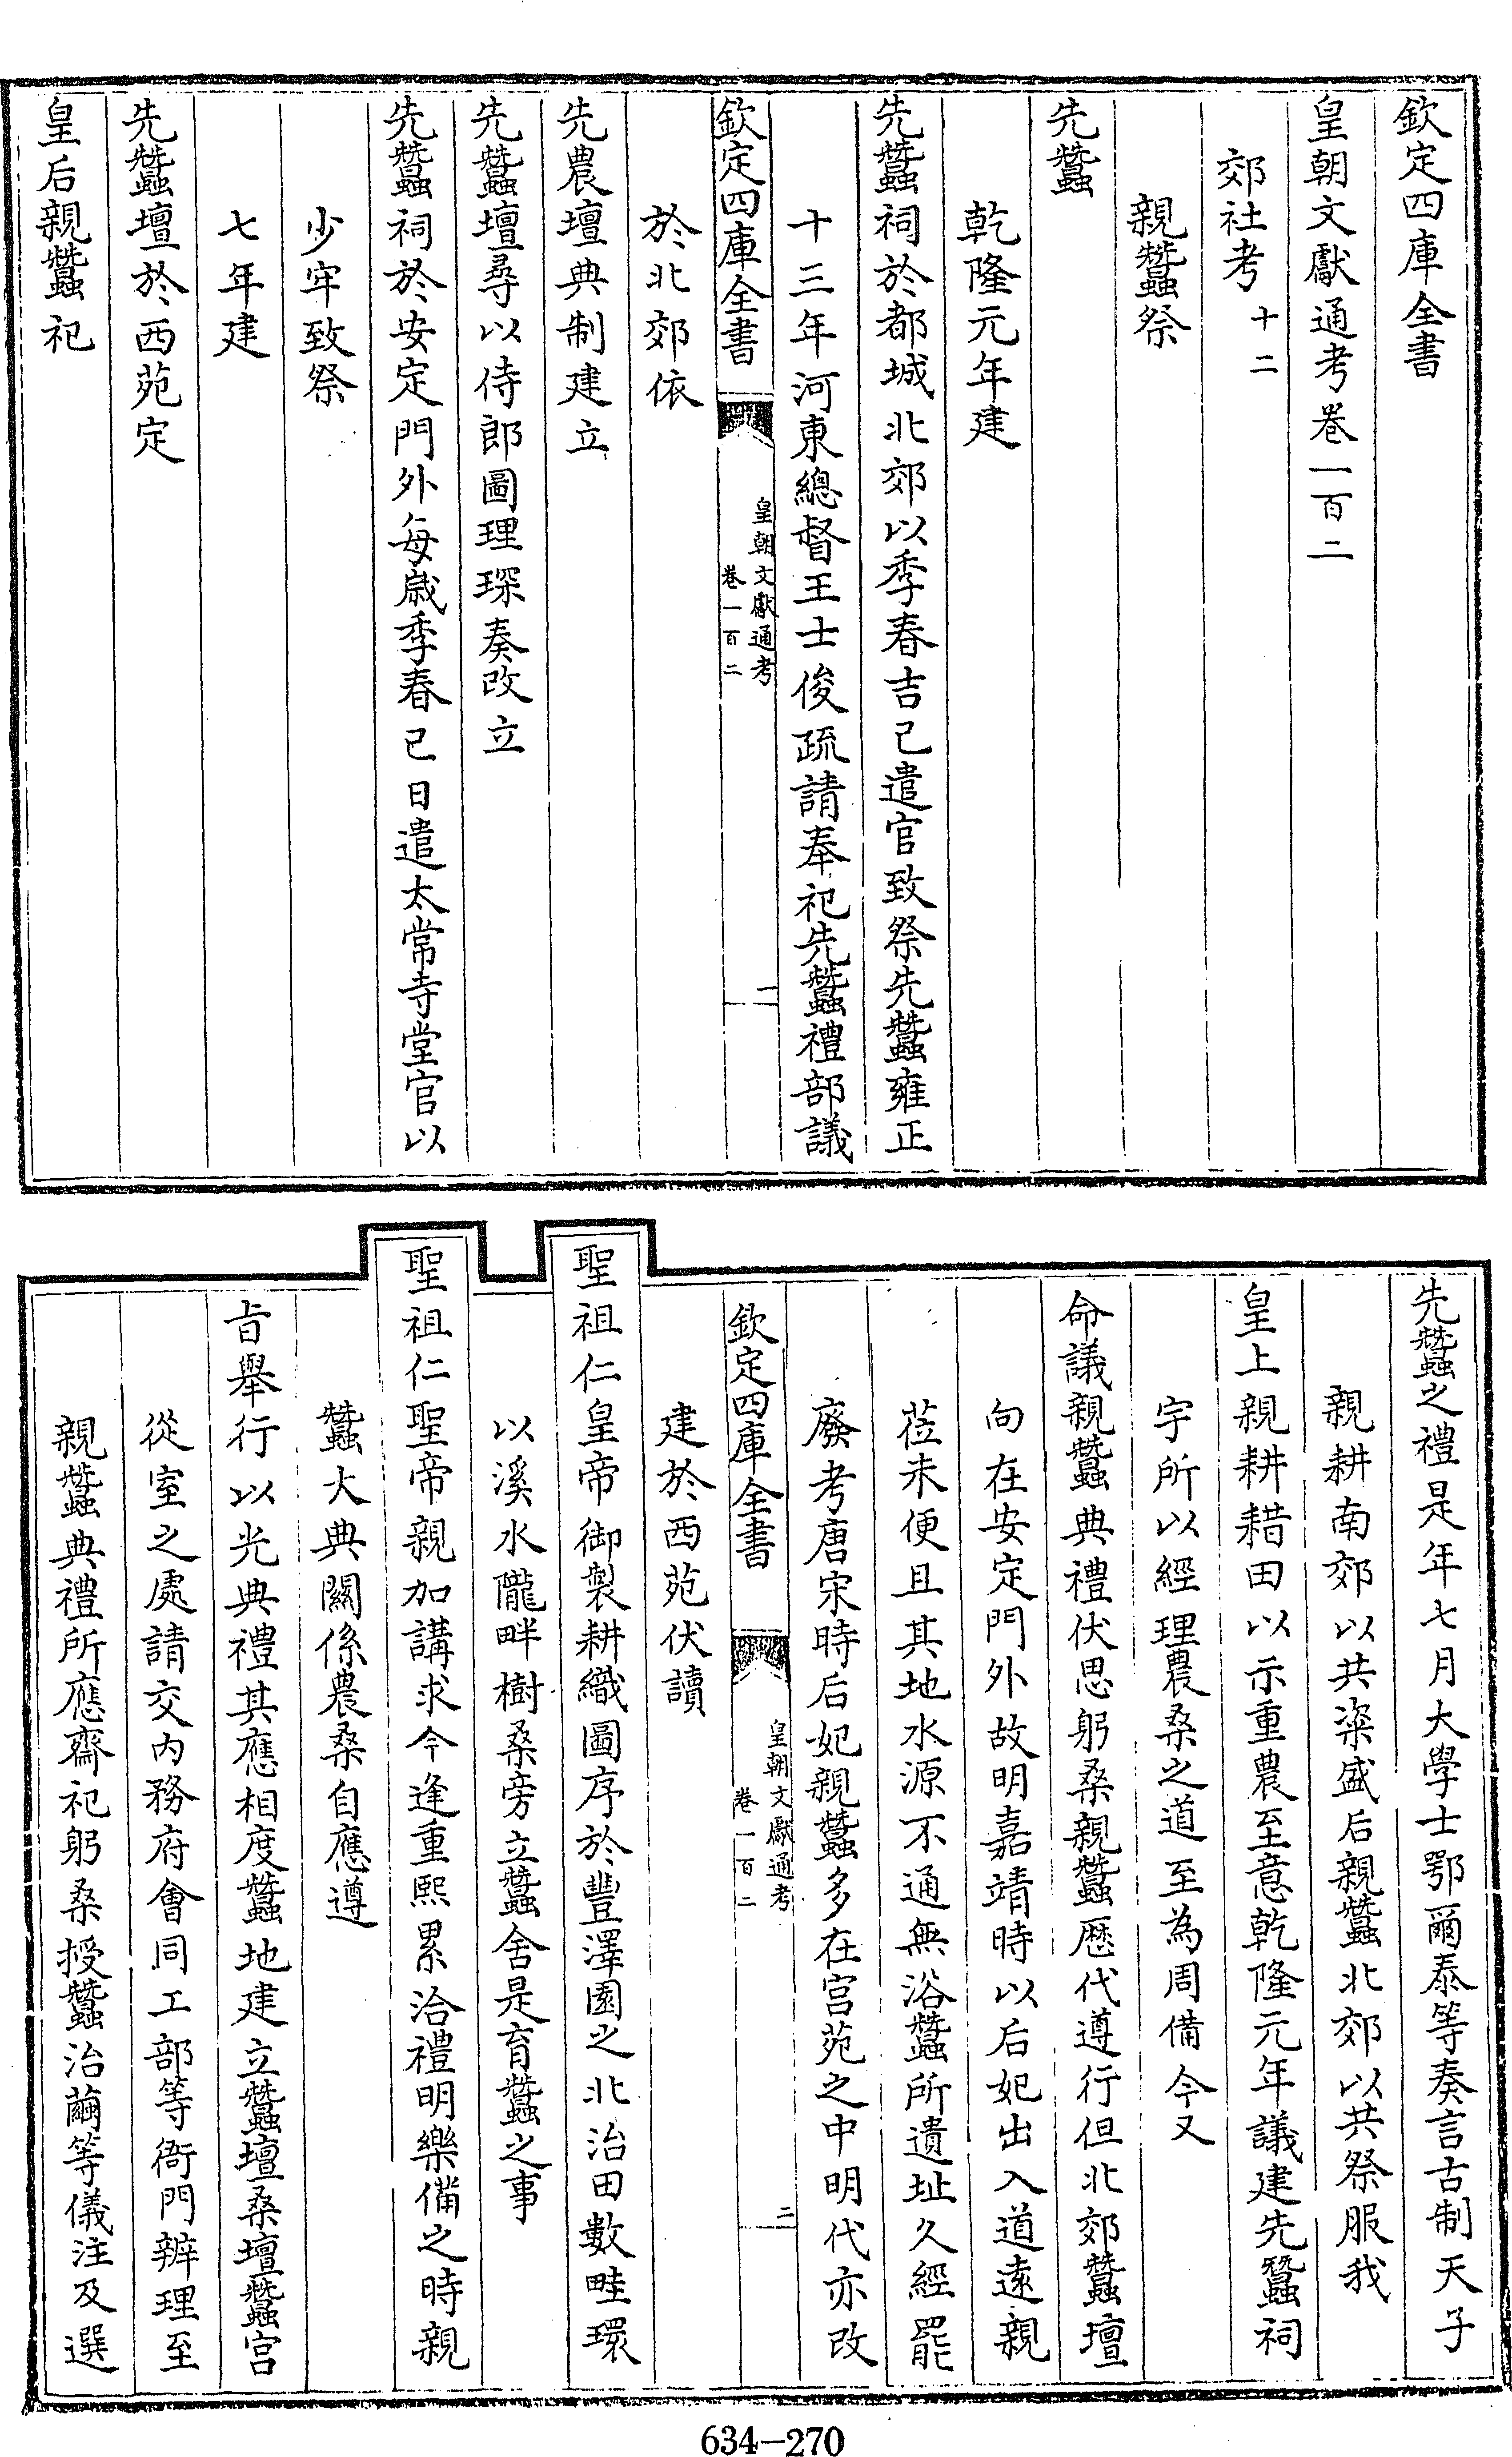 欽定四庫全書
皇朝文獻通考卷一百二
郊社考十二
親蠶祭
先蠶
乾隆元年建
先蠶祠於都城北郊以季春吉己遣官致祭先蠶雍正
十三年河東總督王士俊疏請奉祀先蠶禮部議
欽定四庫全書
皇朝文獻通考
卷一百二
一
於北郊依
先農壇典制建立
先蠶壇尋以侍郎圖理琛奏改立
先蠶祠於安定門外每歲季春己日遣太常寺堂官以
少牢致祭
七年建
先蠶壇於西苑定
皇后親蠶祀
先蠶之禮是年七月大學士鄂爾泰等奏言古制天子
親耕南郊以共粢盛后親蠶北郊以共祭服我
皇上親耕耤田以示重農至意乾隆元年議建先蠶祠
宇所以經理農桑之道至為周備今又
命議親蠶典禮伏思躬桑親蠶歷代遵行但北郊蠶壇
向在安定門外故明嘉靖時以后妃出入道遠親
莅未便且其地水源不通無浴蠶所遺址久經罷
廢考唐宋時后妃親蠶多在宫苑之中明代亦改
欽定四庫全書
皇朝文獻通考
卷一百二
二
建於西苑伏讀
聖祖仁皇帝御製耕織圖序於豐澤園之北治田數畦環
以溪水隴畔樹桑旁立蠶舍是育蠶之事
聖祖仁聖帝親加講求今逢重熙累洽禮明樂備之時親
蠶大典關係農桑自應遵
旨舉行以光典禮其應相度蠶地建立蠶壇桑壇蠶宫
從室之處請交内務府會同工部等衙門辦理至
親蠶典禮所應齋祀躬桑授蠶治繭等儀注及選
634-270